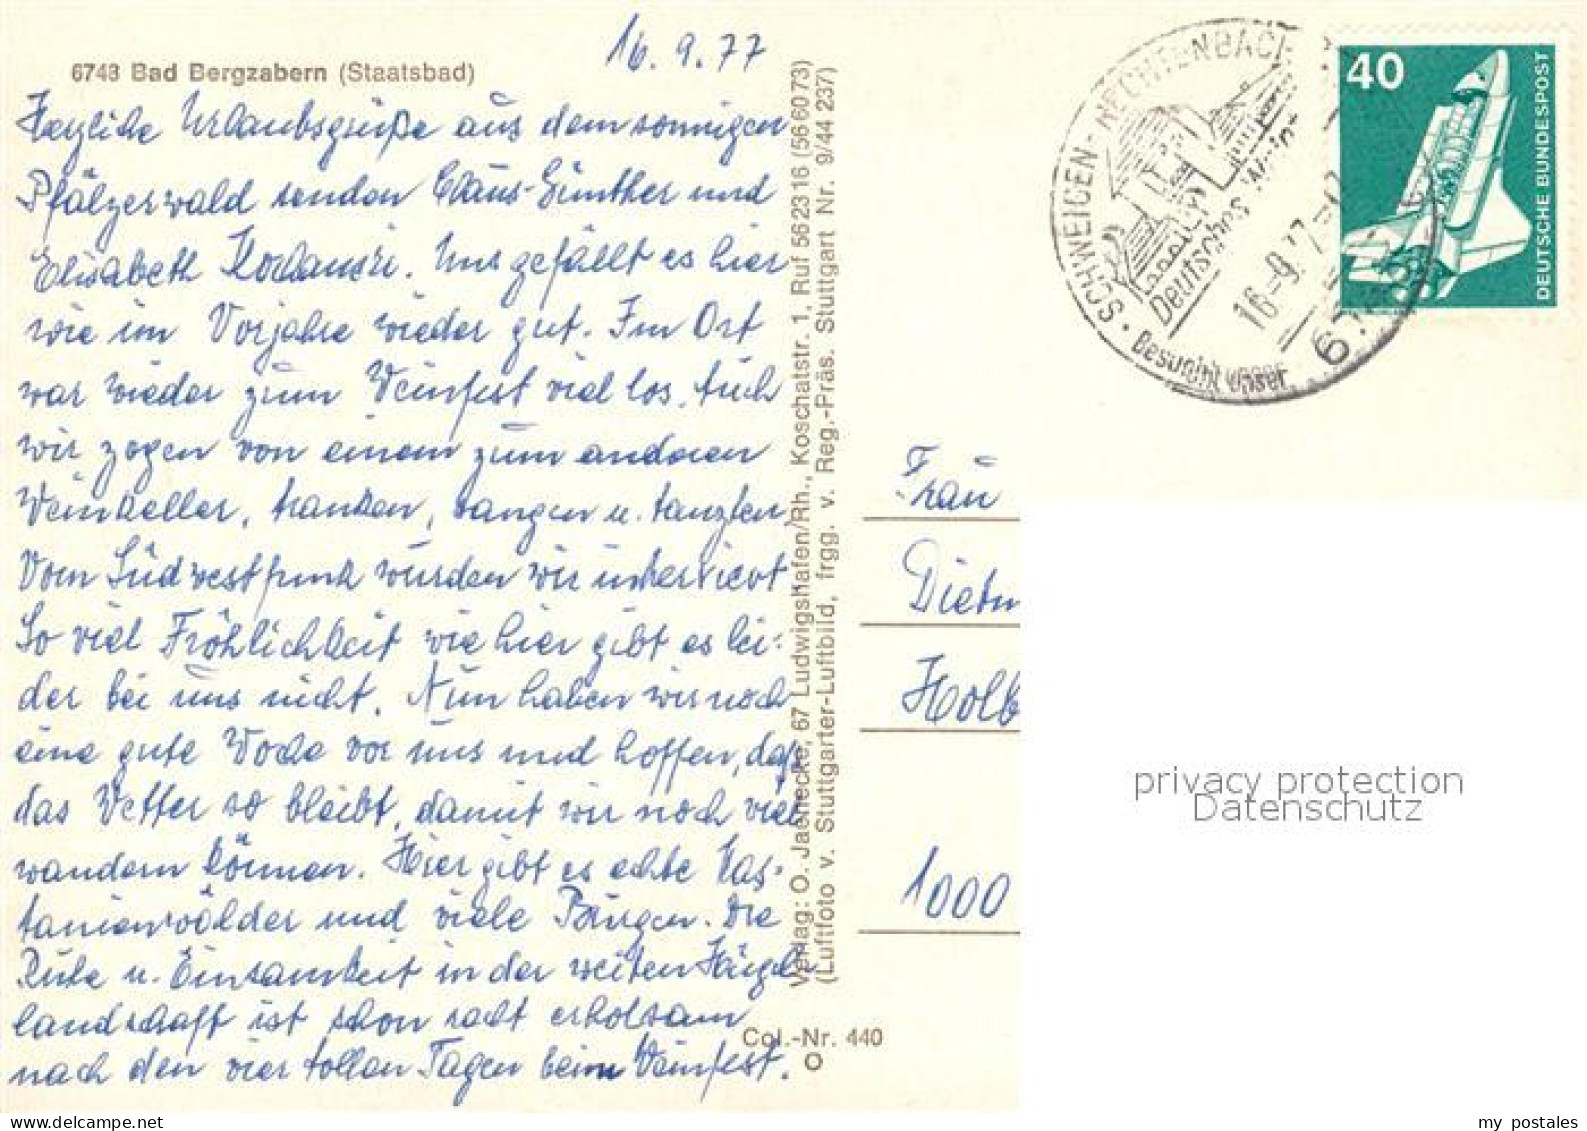 16.9.77
6748 Bad Bergzabern (Staatsbad)
Herzliche Urlaubsgrüße aus dem sonnigen
Pfälzerwald senden Claus-Günther und
Elisabeth. Uns gefällt es hier
wie im Vorjahre wieder gut. Im Ort
war wieder zum Weinfest viel los. Auch
wir zogen von einem zum anderen
Weinkeller, tranken, sangen u. tanzten
Vom Südwestfunk wurden wir
So viel Fröhlichkeit wie hier gibt es lei-
der bei uns nicht. Nun haben wir noch
eine gute Woche vor uns und hoffen, daß
das Wetter so bleibt, damit wir noch viel
wandern können. Hier gibt es echte Kas-
tanienwälder und viele Burgen. Die
Ruhe u. Einsamkeit in der weiten Hügel-
landschaft ist schon recht erholsam
nach den vier tollen Tagen beim Weinfest.
Verlag: O. Jaenecke, 67 Ludwigshafen/Rh., Koschatstr. 1, Ruf 56 23 16 (56 60 73)
(Luftfoto v. Stuttgarter-Luftbild, frgg. v. Reg.-Präs. Stuttgart Nr. 9/44 237)
Col.-Nr. 440
O
SCHWEIGEN-RECHTENBACH
Deutsches Wein
16.-9.77
Besucht unser
40
DEUTSCHE BUNDESPOST
Frau
Dietm
Holb
1000
privacy protection
Datenschutz
my postales